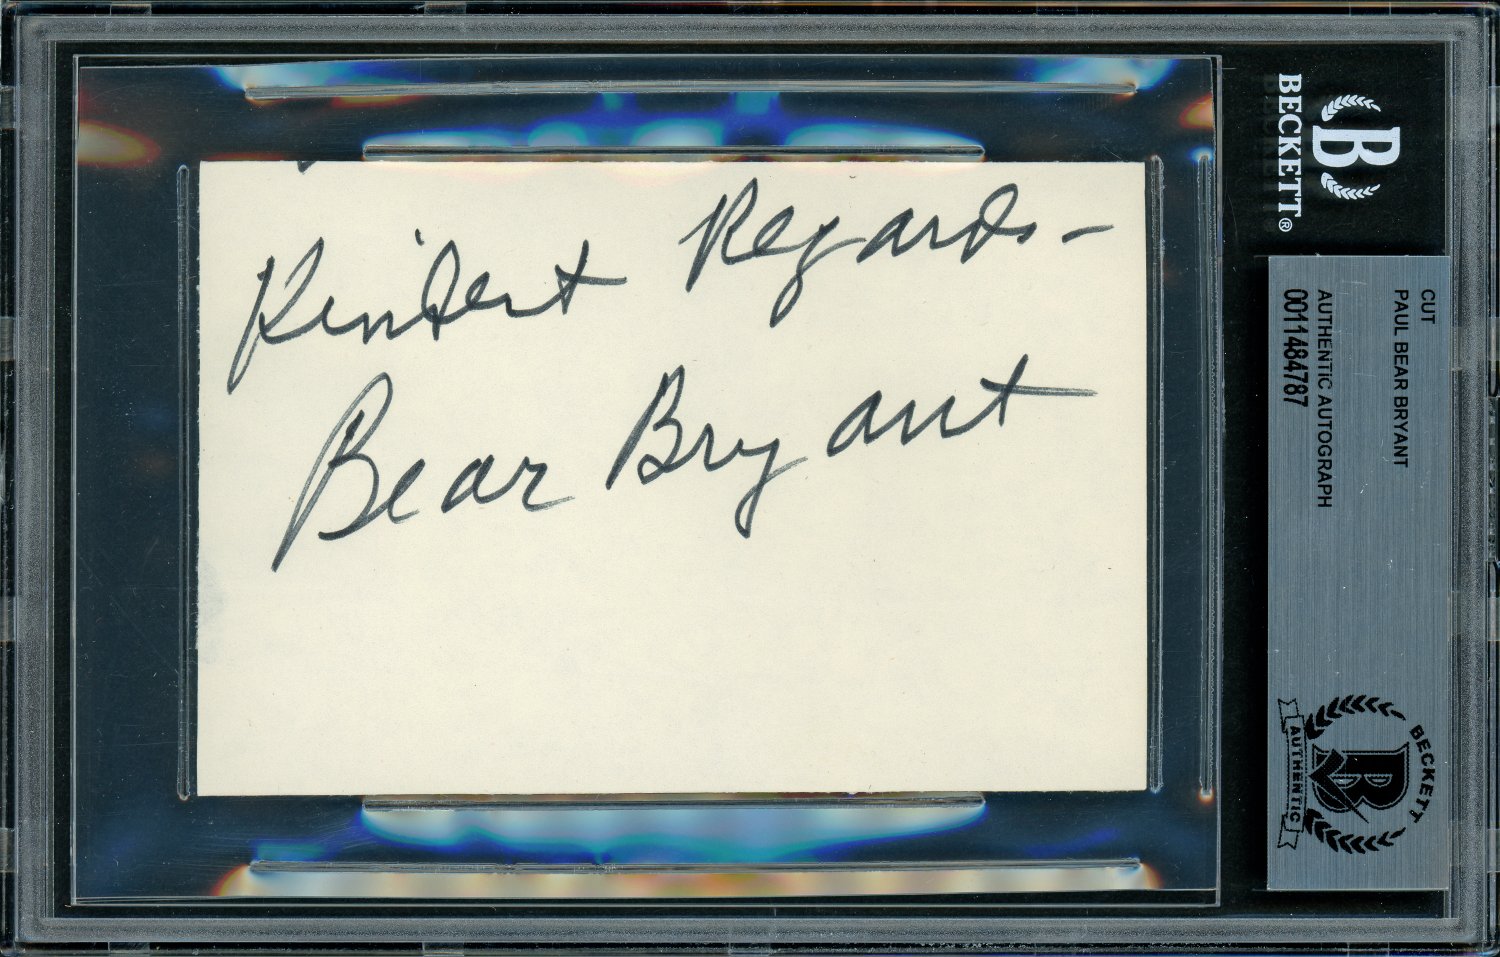 Kindest Regards -
Bear Bryant
BECKETT®
B
CUT
PAUL BEAR BRYANT
AUTHENTIC AUTOGRAPH
0011484787
BECKETT
B
AUTHENTIC